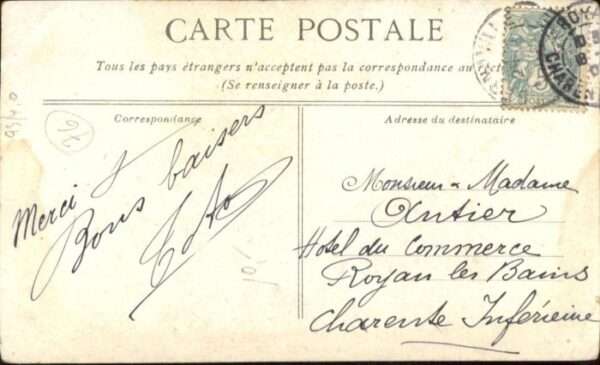 CARTE POSTALE
Tous les pays étrangers n'acceptent pas la correspondance au
(Se renseigner à la poste.)
Correspondance
Adresse du destinataire
Merci &
Bons baisers
Toto
Monsieur & Madame
Antier
Hotel du Commerce
Royan les Bains
Charente Inférieure